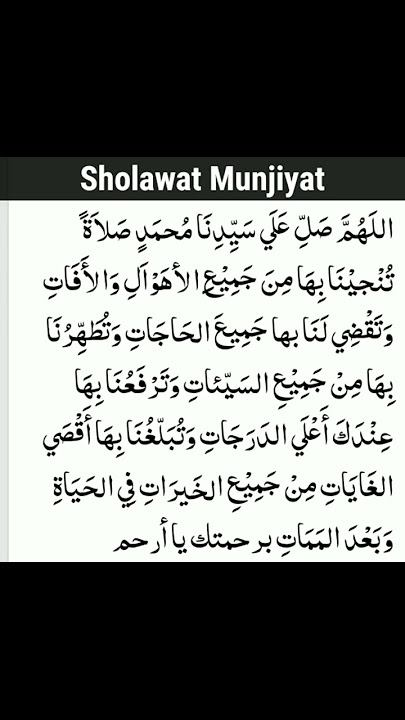 Sholawat Munjiyat
اللَهُمَّ صَلِّ عَلَي سَيِّدِنَا مُحمَدٍ صَلاَةً
تُنْجيْنَا بِهَا مِنَ جَمِيْعِ الأهْوَاَلِ وَالأَفَاتِ
وَتَقْضِي لَنَا بها جَمِيعَ الحَاجَاتِ وَتُطَهِّرُنَا
بِهَا مِنْ جَمِيْعِ السَيّئاتِ وَتَرْفَعُنَا بِهَا
عِنْدَكَ أَعْلَي الدَرَجَاتِ وَتُبَلّغُنَا بِهَا أَقْصَي
الغَايَاتِ مِنْ جَمِيْعِ الخَيرَاتِ فِي الحَيَاةِ
وَبَعْدَ المَمَاتِ برحمتك يا أرحم